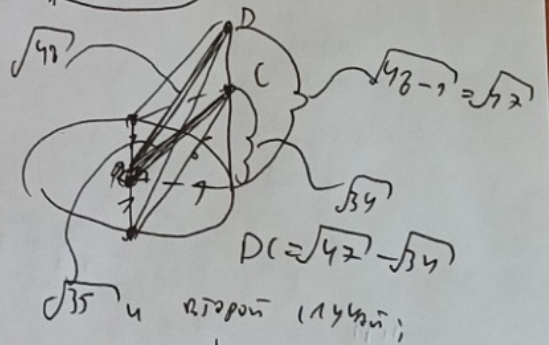 D
√48
C
√48-1 = √47
1
√34
DC = √47 - √34
√35 и второй случай;